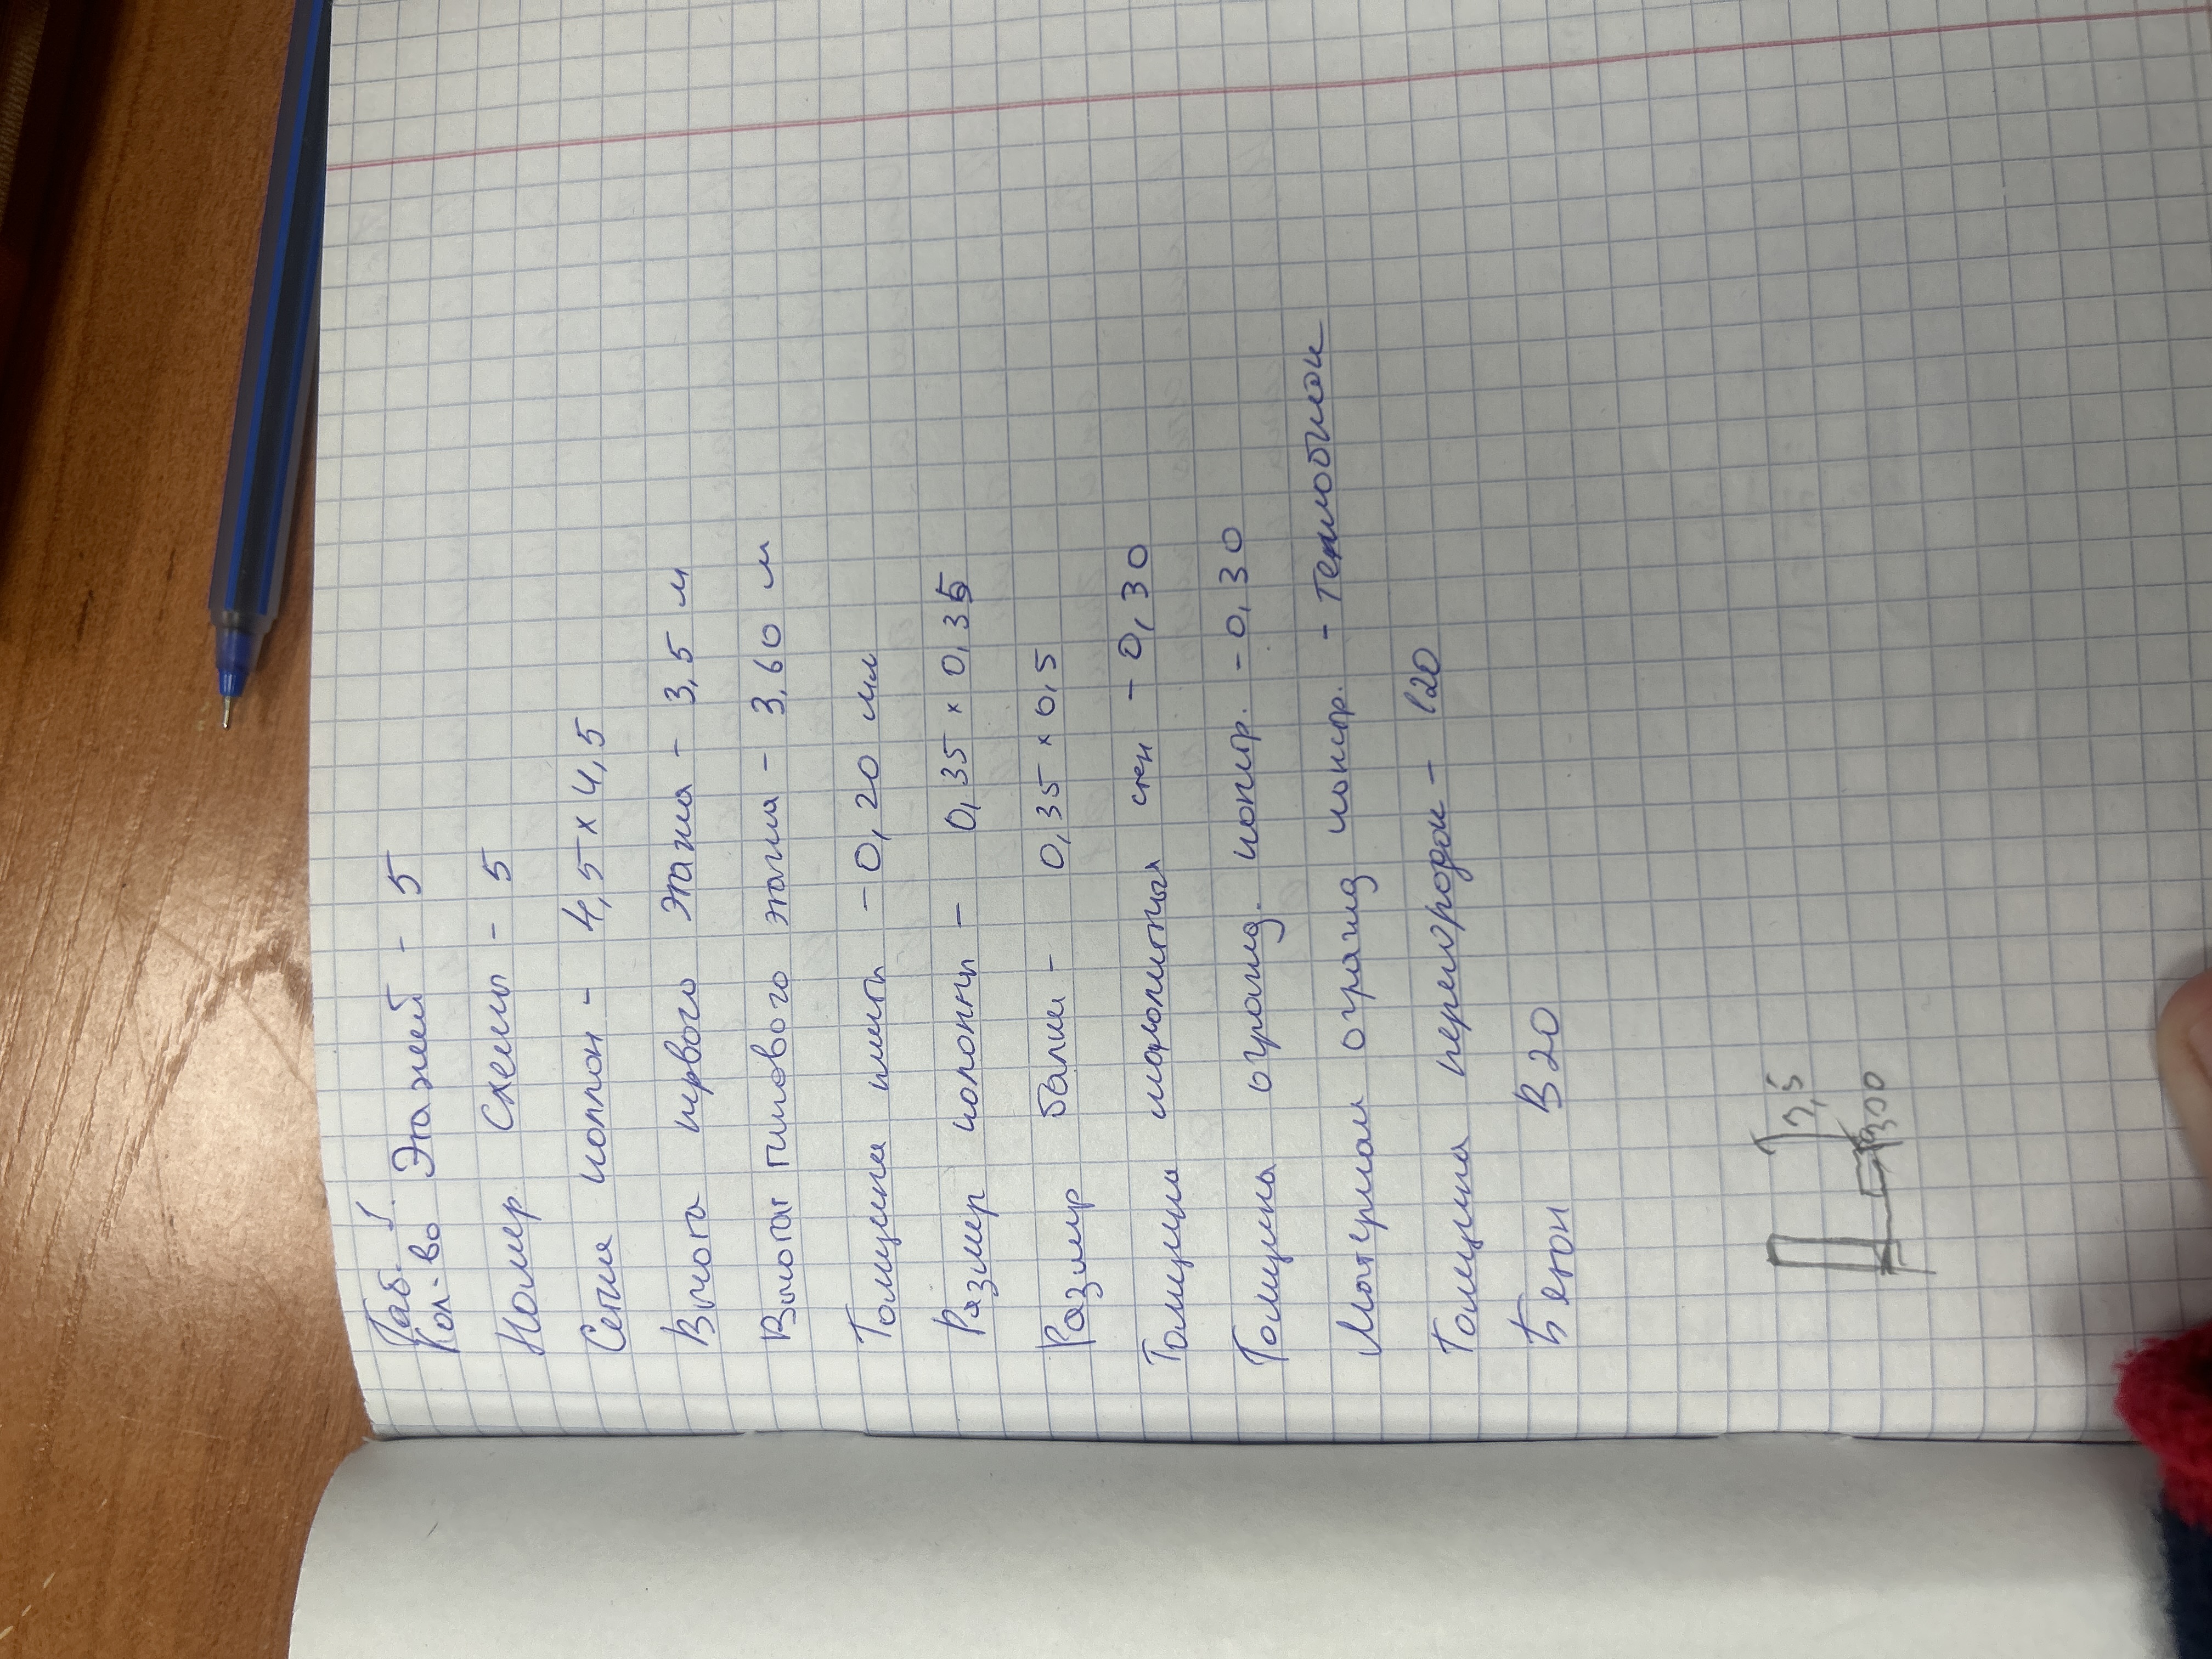 Таб. 1.
Кол-во Этажей - 5
Номер Схемы - 5
Сетка коллон - 4,5 x 4,5
Высота первого этажа - 3,5 м
Высота типового этажа - 3,60 м
Толщина плиты - 0,20 мм
Размер колонны - 0,35 x 0,35
Размер балки - 0,35 x 0,5
Толщина монолитных стен - 0,30
Толщина огражд. констр. - 0,30
Материал огражд констр. - теплоблок
Толщина перегородок - 120
Бетон B20
3,5
300